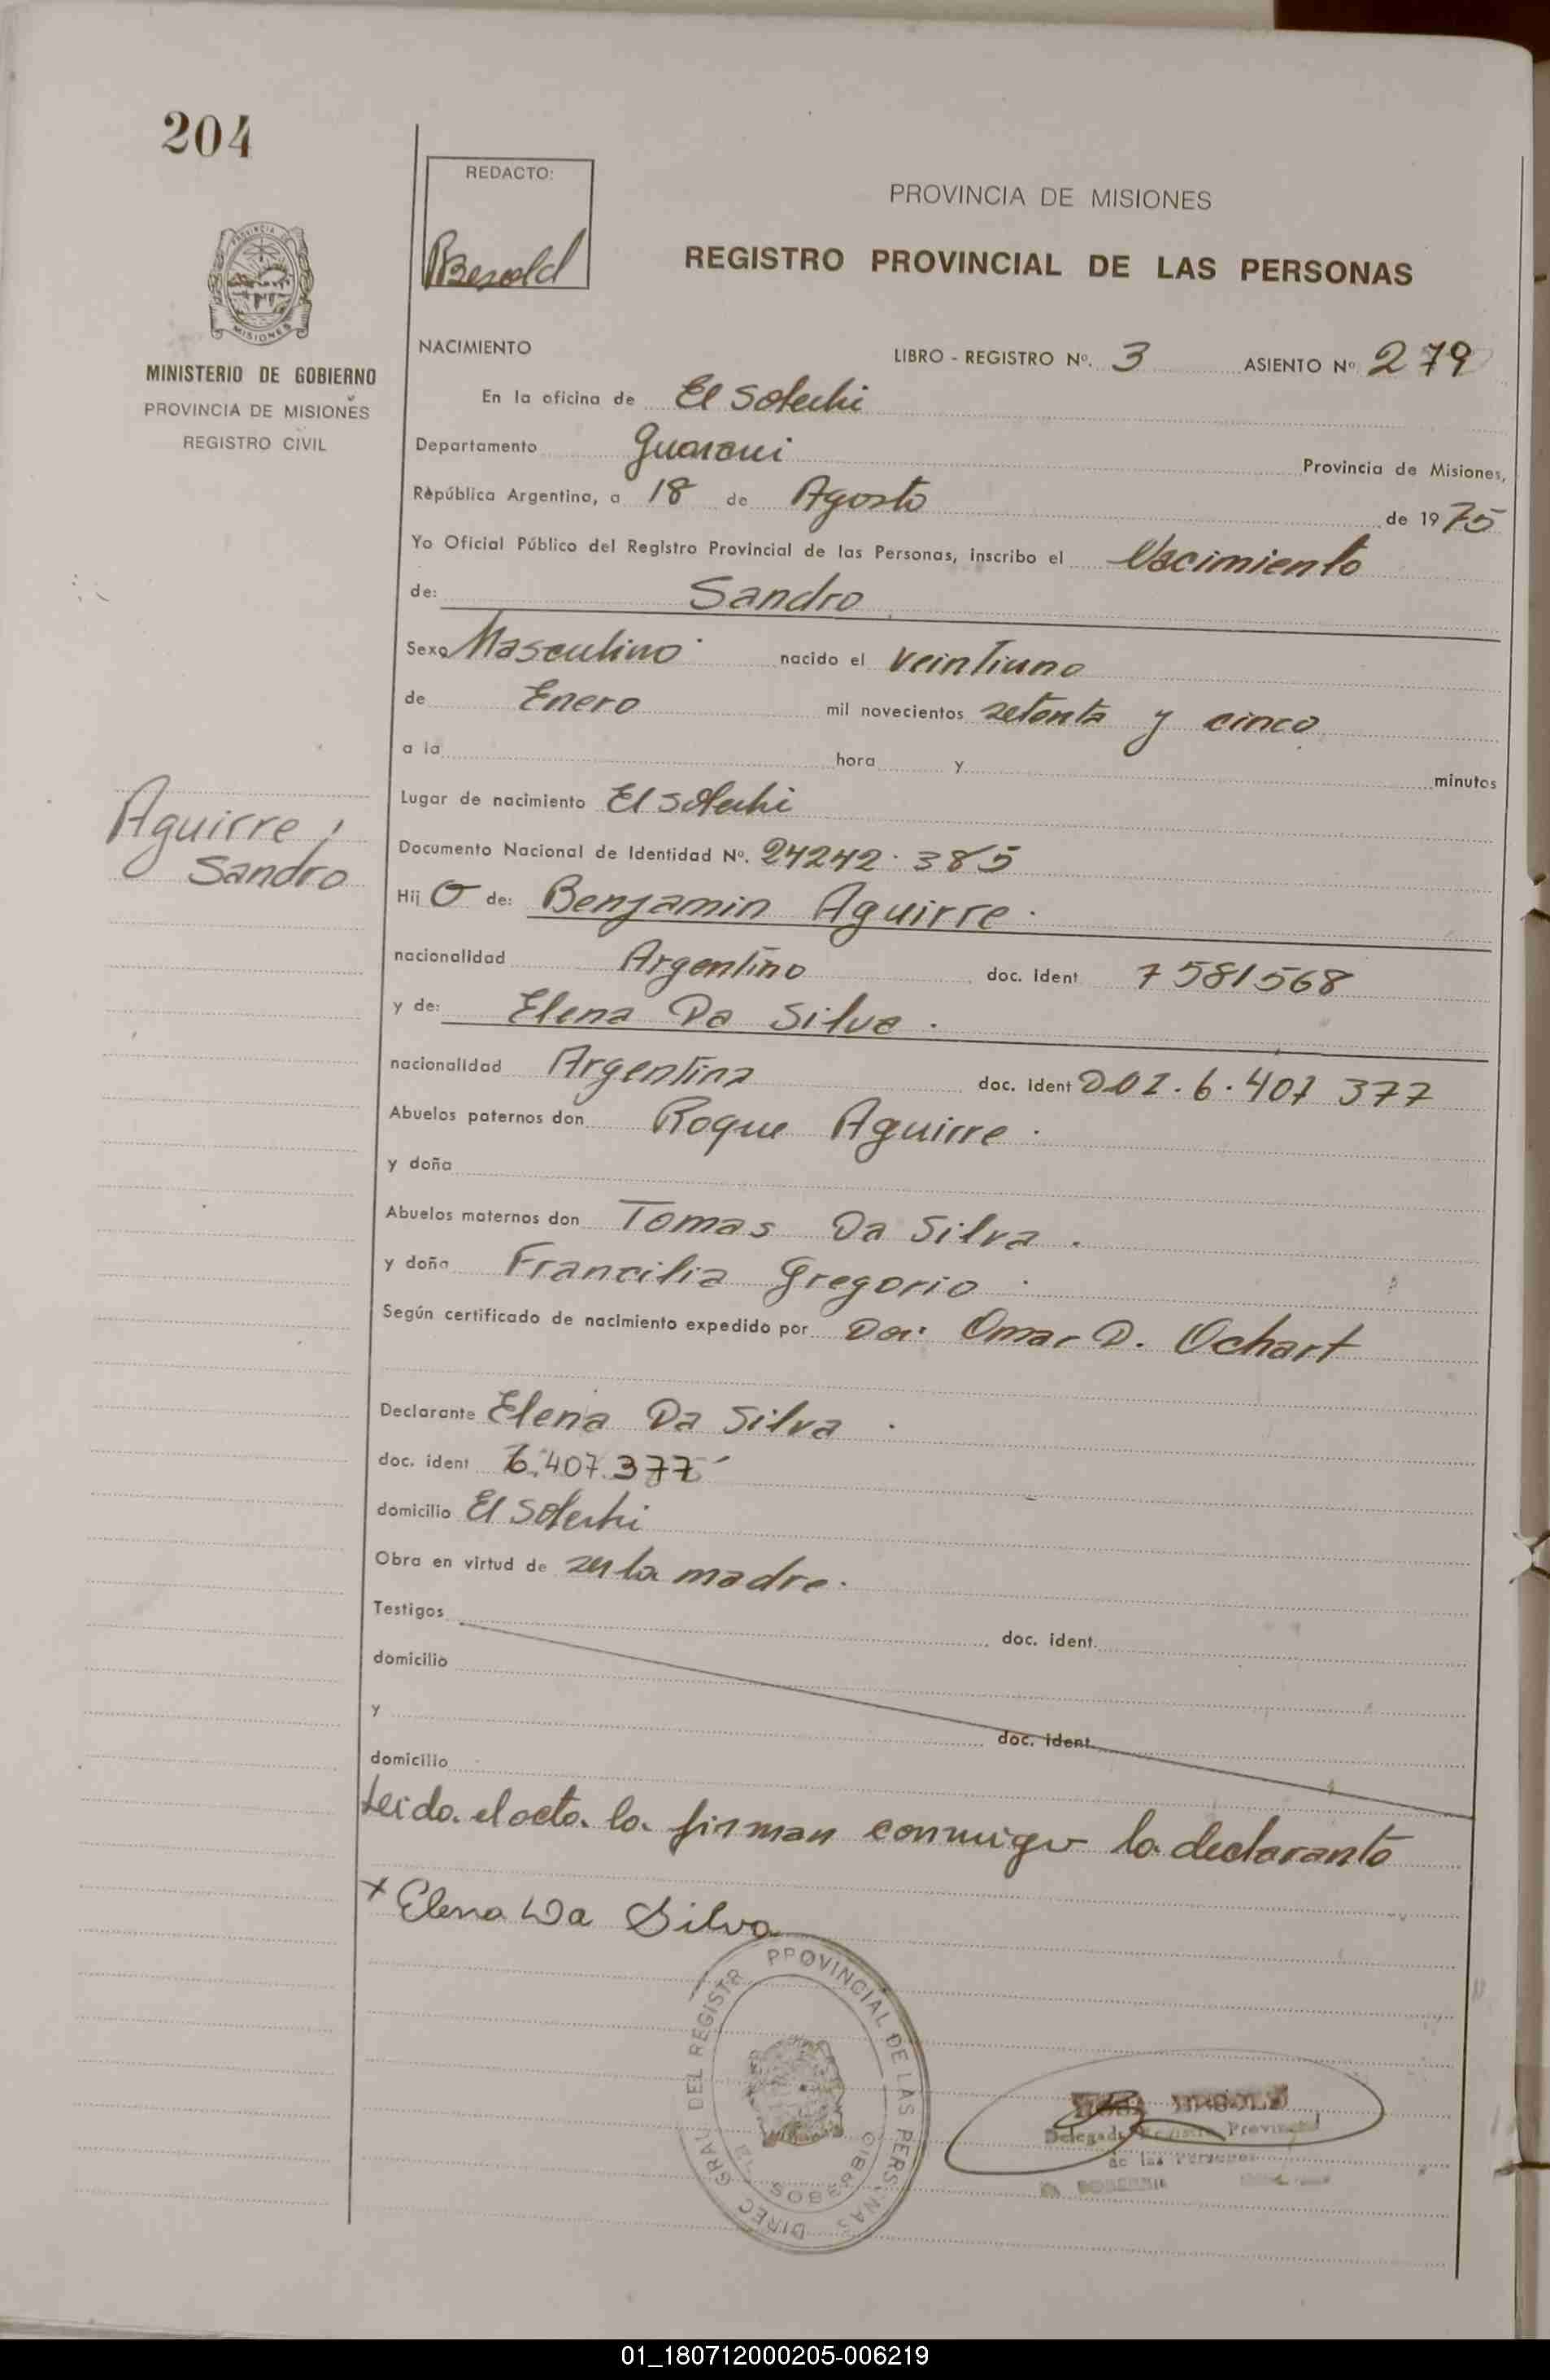 204
REDACTO:
Besold
PROVINCIA DE MISIONES
REGISTRO PROVINCIAL DE LAS PERSONAS
MISIONES
MINISTERIO DE GOBIERNO
PROVINCIA DE MISIONES
REGISTRO CIVIL
NACIMIENTO
LIBRO - REGISTRO Nº. 3 ASIENTO Nº 279
En la oficina de El Soberbi
Departamento Guarani Provincia de Misiones,
República Argentina, a 18 de Agosto de 1975
Yo Oficial Público del Registro Provincial de las Personas, inscribo el Nacimiento
de: Sandro
Sexo Masculino nacido el veintiuno
de Enero mil novecientos setenta y cinco
a la hora y minutos
Lugar de nacimiento El Soberbi
Aguirre,
Sandro
Documento Nacional de Identidad Nº. 24242.385
Hij O de: Benjamin Aguirre.
nacionalidad Argentino doc. ident 7581568
y de: Elena Da Silva.
nacionalidad Argentina doc. ident 6.407 377
Abuelos paternos don Roque Aguirre.
y doña
Abuelos maternos don Tomas Da Silva.
y doña Francilia Gregorio
Según certificado de nacimiento expedido por Omar D. Ochart
Declarante Elena Da Silva.
doc. ident 6.407.377
domicilio El Soberbi
Obra en virtud de ser la madre.
Testigos doc. ident.
domicilio
y doc. ident
domicilio
Leida el acta la firman conmigo la declarante
x Elena Da Silva
DIREC GRAL DEL REGISTR PROVINCIAL DE LAS PERSONAS
SOBERBIO
Delegado Registro Provincial
de las Personas
01_180712000205-006219